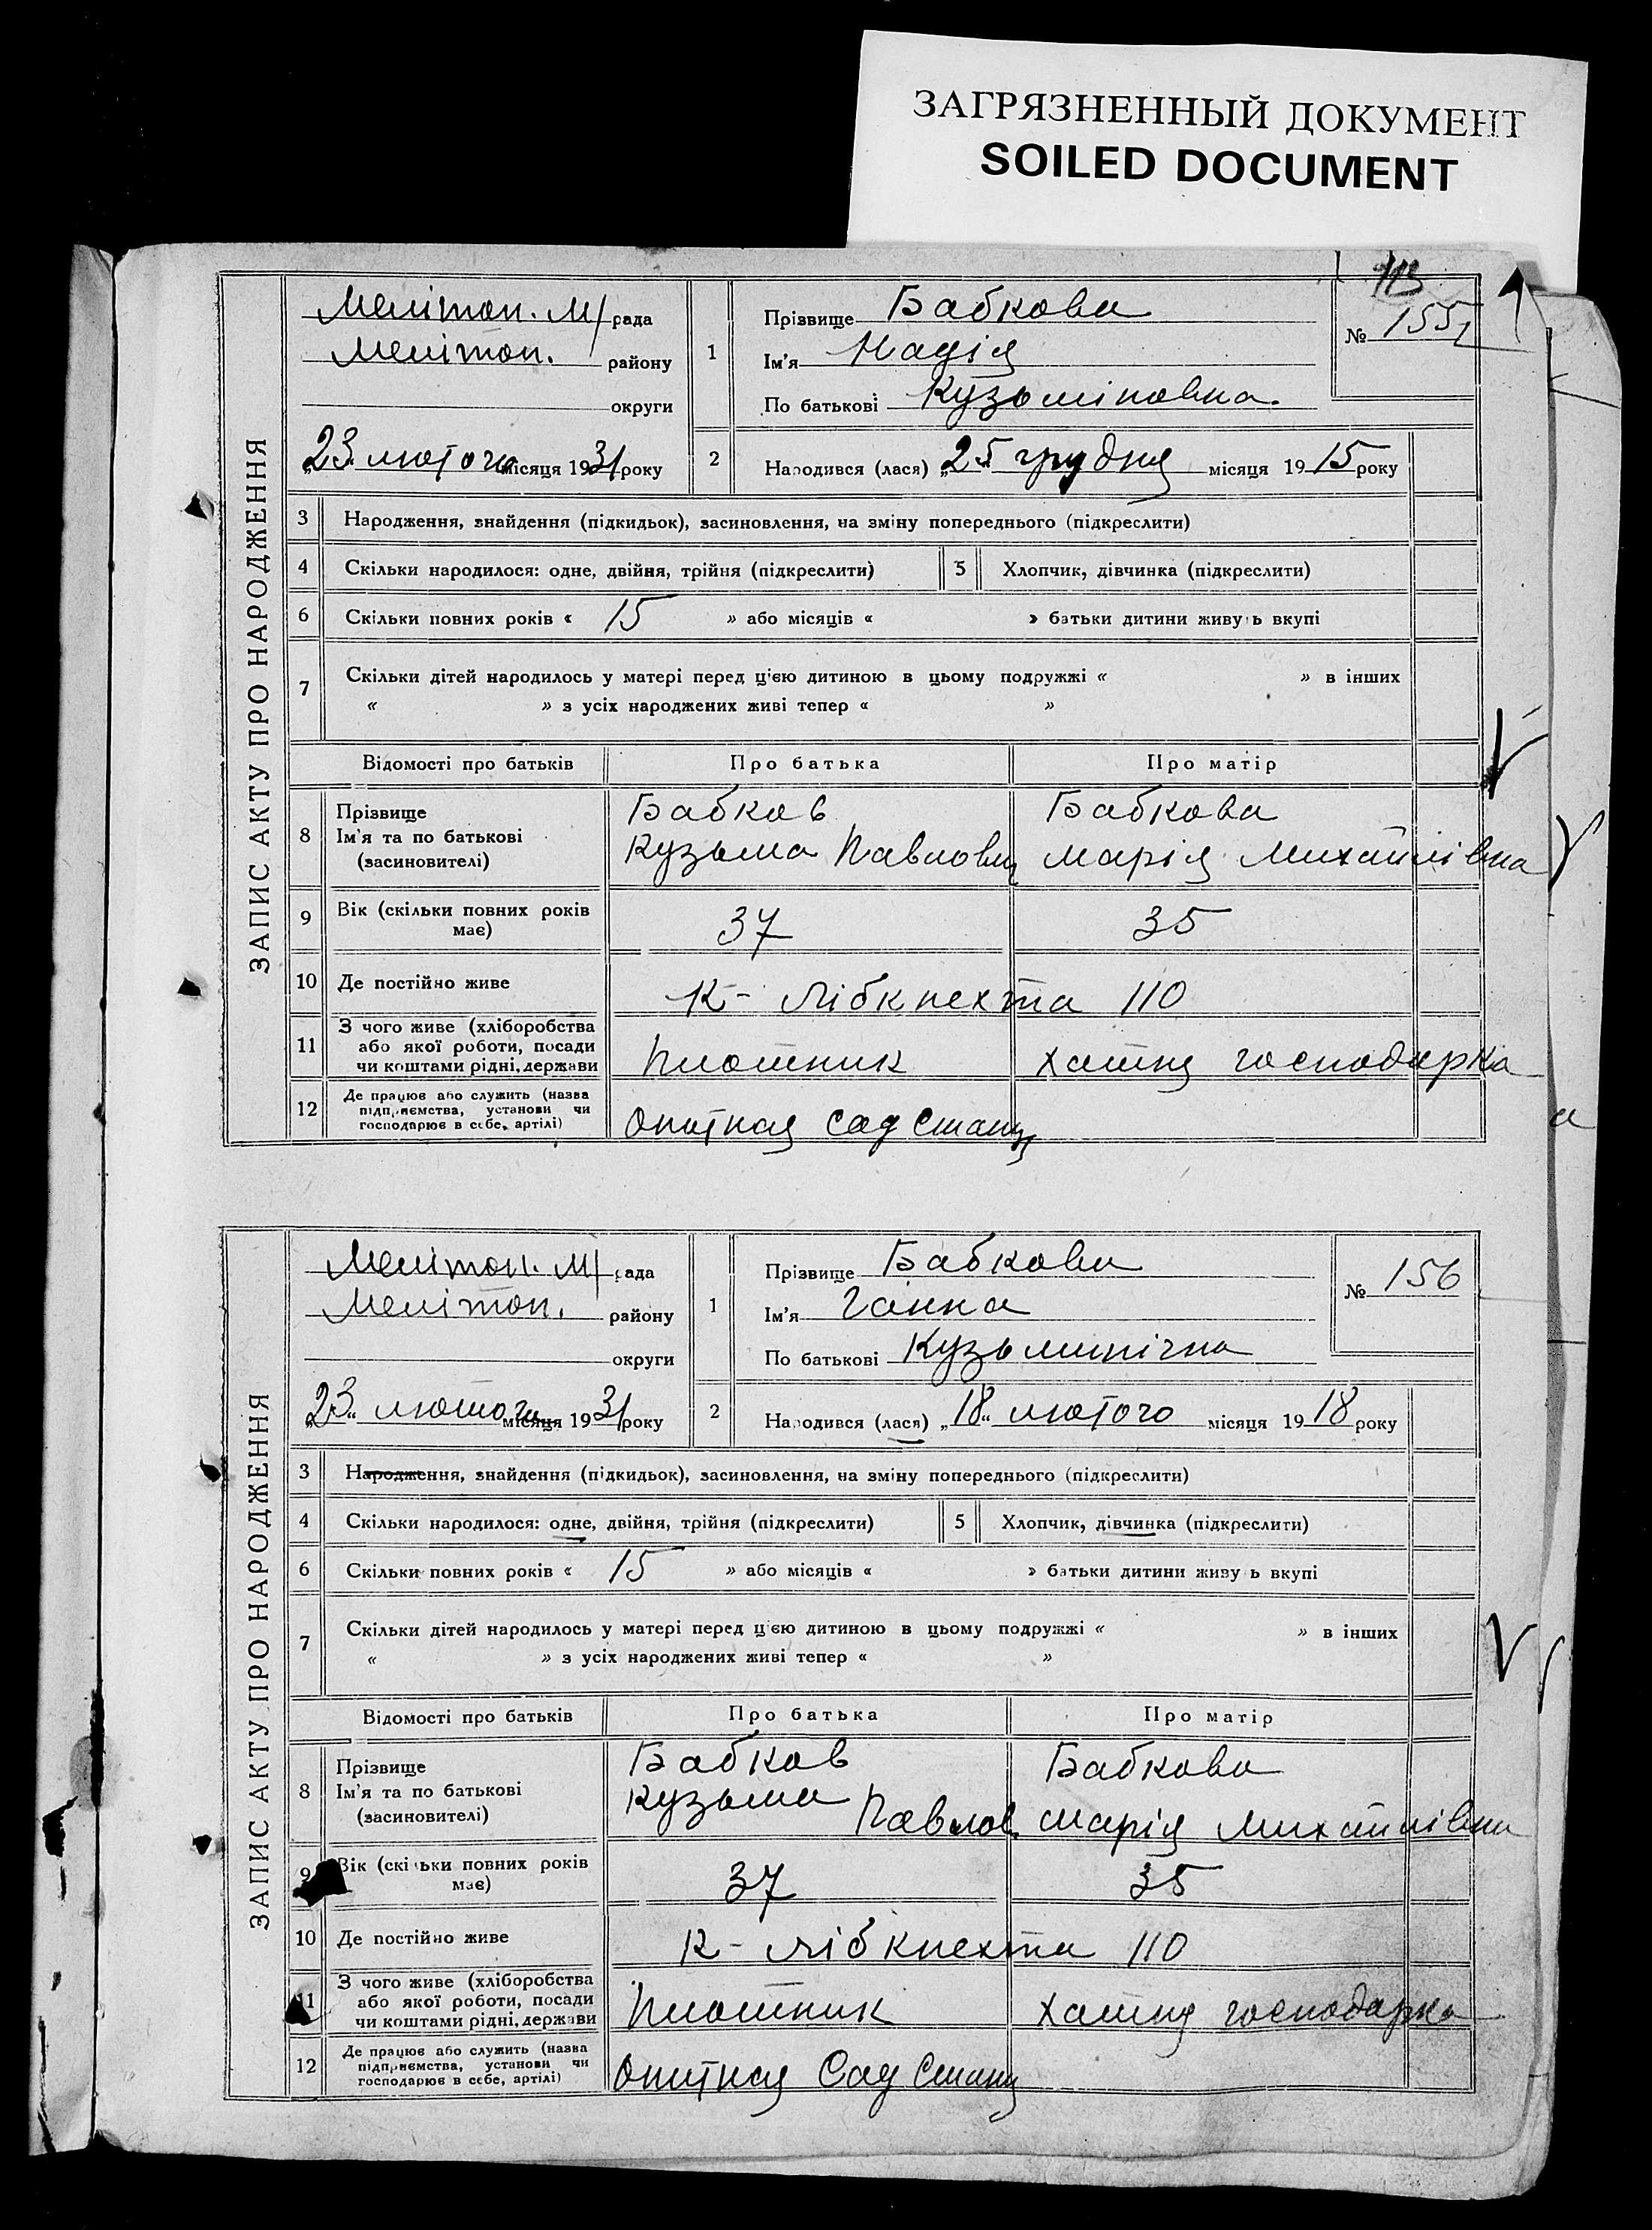 ЗАГРЯЗНЕННЫЙ ДОКУМЕНТ
SOILED DOCUMENT
113
ЗАПИС АКТУ ПРО НАРОДЖЕННЯ
Меліто́п. М/рада
Меліто́п. району
округи
„23“ лютого місяця 1931 року
1
Прізвище Бабкова
Ім'я Надія
По батькові Кузьміновна.
№ 155
2
Народився (лася) „25“ грудня місяця 1915 року
3 Народження, знайдення (підкидьок), засиновлення, на зміну попереднього (підкреслити)
4 Скільки народилося: одне, двійня, трійня (підкреслити) 5 Хлопчик, дівчинка (підкреслити)
6 Скільки повних років « 15 » або місяців « » батьки дитини живуть вкупі
7 Скільки дітей народилось у матері перед цією дитиною в цьому подружжі « » в інших
« » з усіх народжених живі тепер « »
Відомості про батьків Про батька Про матір
8 Прізвище
Ім'я та по батькові
(засиновителі)
Бабков
Кузьма Павлович
Бабкова
Марія Михайлівна
9 Вік (скільки повних років
має)
37 35
10 Де постійно живе К- Лібкнехта 110
11 З чого живе (хліборобства
або якої роботи, посади
чи коштами рідні, держави
Плотник Хатня господарка
12 Де працює або служить (назва
підприємства, установи чи
господарює в себе, артілі)
Опитная Сад Станц
ЗАПИС АКТУ ПРО НАРОДЖЕННЯ
Мелітоп. М/рада
Мелітоп. району
округи
„23“ лютого місяця 1931 року
1
Прізвище Бабкова
Ім'я Ганна
По батькові Кузьминічна
№ 156
2
Народився (лася) „18“ лютого місяця 1918 року
3 Народження, знайдення (підкидьок), засиновлення, на зміну попереднього (підкреслити)
4 Скільки народилося: одне, двійня, трійня (підкреслити) 5 Хлопчик, дівчинка (підкреслити)
6 Скільки повних років « 15 » або місяців « » батьки дитини живуть вкупі
7 Скільки дітей народилось у матері перед цією дитиною в цьому подружжі « » в інших
« » з усіх народжених живі тепер « »
Відомості про батьків Про батька Про матір
8 Прізвище
Ім'я та по батькові
(засиновителі)
Бабков
Кузьма Павлов
Бабкова
Марія Михайлівна
9 Вік (скільки повних років
має)
37 35
10 Де постійно живе К- Лібкнехта 110
11 З чого живе (хліборобства
або якої роботи, посади
чи коштами рідні, держави
Плотник Хатня господарка
12 Де працює або служить (назва
підприємства, установи чи
господарює в себе, артілі)
Опитная Сад Станц